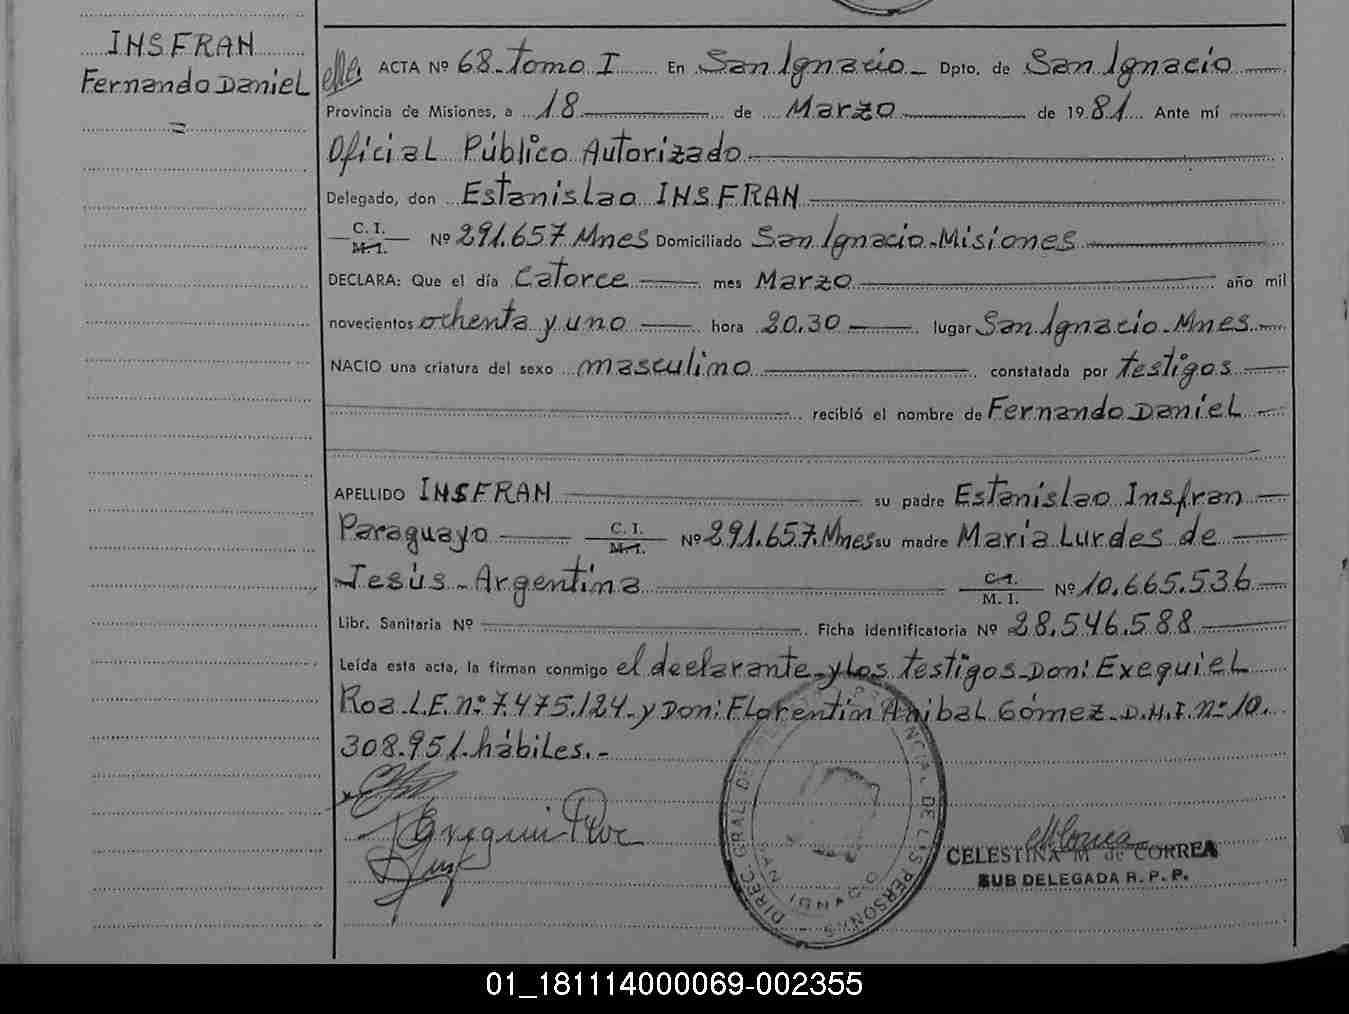 INSFRAN
Fernando Daniel
=
ACTA Nº 68-Tomo I En San Ignacio - Dpto. de San Ignacio
Provincia de Misiones, a 18 de Marzo de 1981. Ante mí
Oficial Público Autorizado
Delegado, don Estanislao INSFRAN
C. I.
M. I. Nº 291.657 Mnes Domiciliado San Ignacio-Misiones
DECLARA: Que el día Catorce mes Marzo año mil
novecientos ochenta y uno hora 20.30 lugar San Ignacio-Mnes
NACIO una criatura del sexo masculino constatada por testigos
recibió el nombre de Fernando Daniel
APELLIDO INSFRAN su padre Estanislao Insfran
Paraguayo C. I.
M. I. Nº 291.657.Mnes su madre María Lurdes de
Jesús-Argentina C. I.
M. I. Nº 10.665.536
Libr. Sanitaria Nº Ficha identificatoria Nº 28.546.588
Leída esta acta, la firman conmigo el declarante-y los testigos-Don: Exequiel
Roa-L.E.nº 7.475.124-y Don: Florentín Anibal Gómez-D.N.I.nº 10.
308.951.hábiles.-
Exequiel Roa
DIREC. GRAL. DEL PROVINCIAL DE LAS PERSONAS
SAN IGNACIO
CELESTINA M de CORREA
SUB DELEGADA R. P. P.
01_181114000069-002355